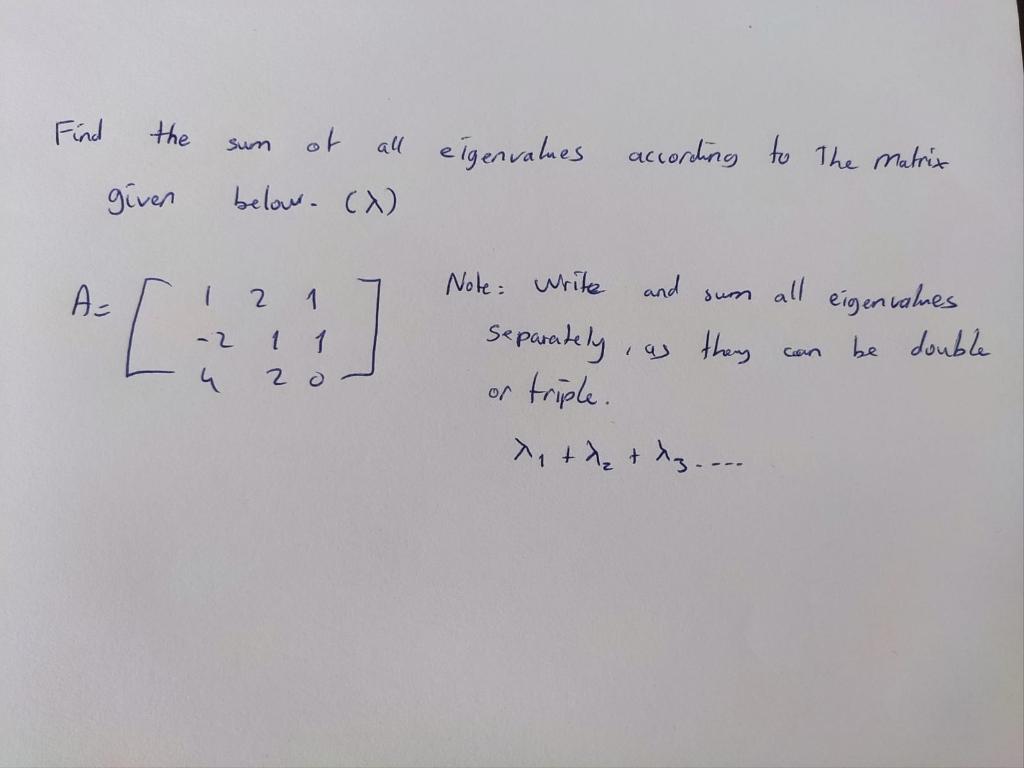 Find the sum of all eigenvalues according to The matrix
given below. (λ)
A= [ 1 2 1
-2 1 1
4 2 0 ]
Note: Write and sum all eigenvalues
separately, as they can be double
or triple.
λ1 + λ2 + λ3.----